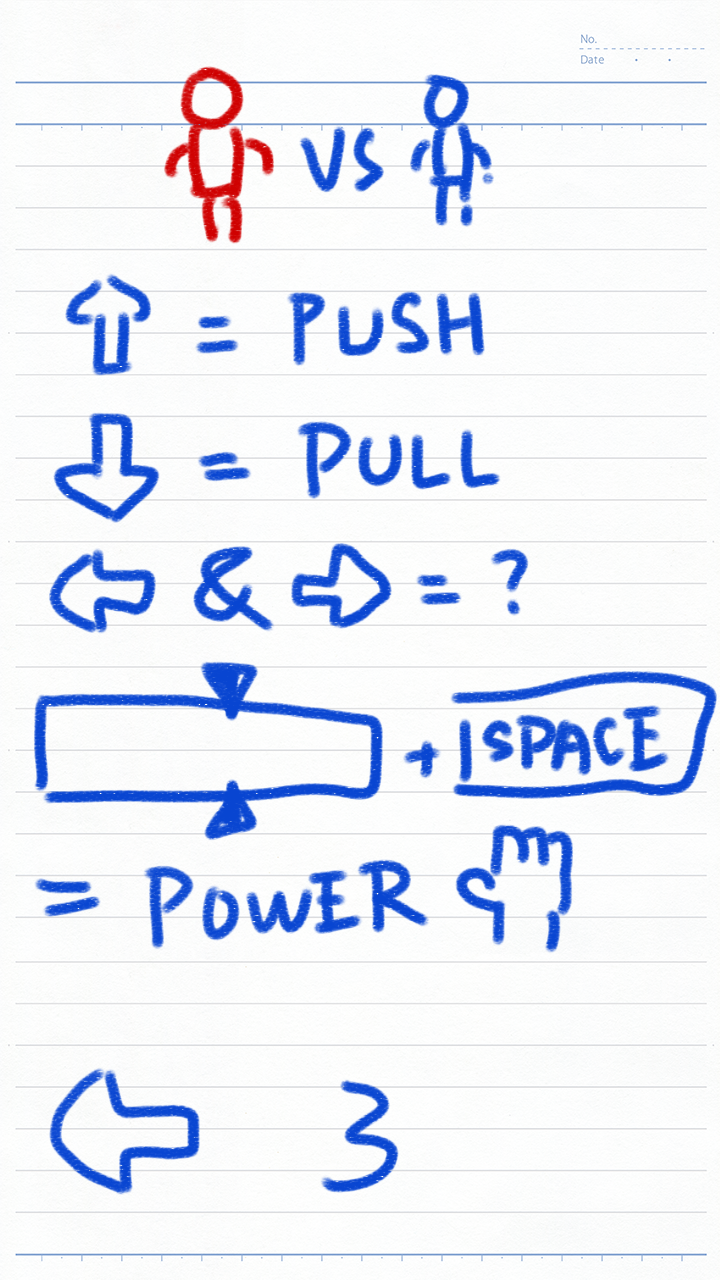 No.
Date
VS
= PUSH
= PULL
& = ?
+ SPACE
= POWER
3